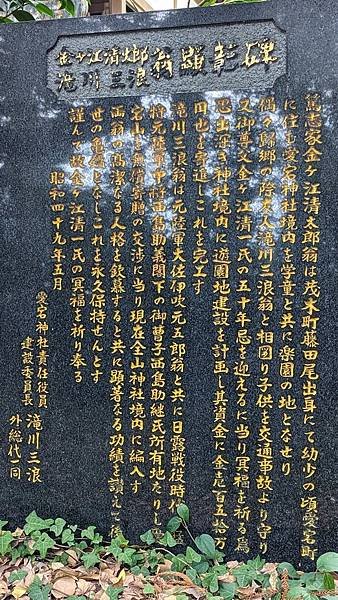 金ヶ江清太郎
滝川三浪 翁顕彰碑
篤志家金ヶ江清太郎翁は茂木町藤田尾出身にて幼少の頃愛宕町
に住み愛宕神社境内を学童と共に楽園の地となせり
偶々帰郷の際友人滝川三浪翁と相図り子供を交通事故より守り
又御尊父金ヶ江清一氏の五十年忌を迎えるに当り冥福を祈る為
思出深き神社境内に遊園地建設を計画し其資金に金壱百五拾万
円也を寄進しこれを完工す
滝川三浪翁は元陸軍大佐伊吹元五郎翁と共に日露戦役時代
将元陸軍中将西島助義閣下の御曹子西島助継氏所有地たりし
宕山を無償寄贈の交渉に当り現在全山神社境内に編入す
両翁の高潔なる人格を欽慕すると共に顕著なる功績を讃えて後
世の亀鑑となしこれを永久保持せんとす
謹んで故金ヶ江清一氏の冥福を祈り奉る
昭和四十九年五月
愛宕神社責任役員
建設委員長 滝川三浪
外総代一同